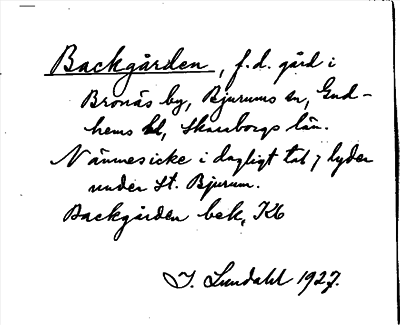 Backgården, f.d. gård i
Bronäs by, Bjurums sn, Gud-
hems hd, Skaraborgs län.
Nämnes icke i dagligt tal, lyder
under St. Bjurum.
Backgården bek, K6
I. Lundahl 1927.